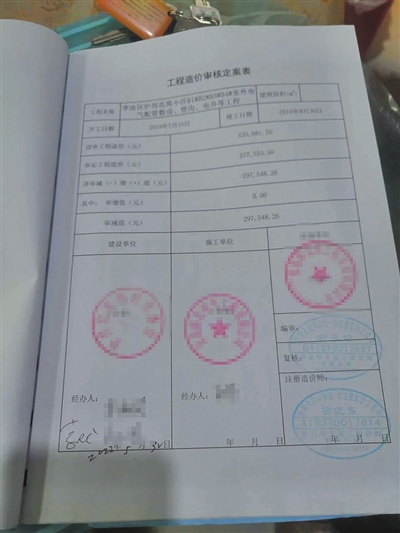 工程造价审核定案表
工程名称
建筑面积(㎡)
气配管敷设、管沟、电井等工程
开工日期
2019年7月15日
竣工日期
2019年9月30日
送审工程造价(元)
535,081.76
审定工程造价(元)
237,533.50
净审减(-)增(+)值(元)
-297,548.26
其中: 审增值(元)
0.00
审减值(元)
297,548.26
建设单位
施工单位
编审:
复核:
注册造价师:
经办人:
经办人:
2022年5月30日
年 月 日
年 月 日